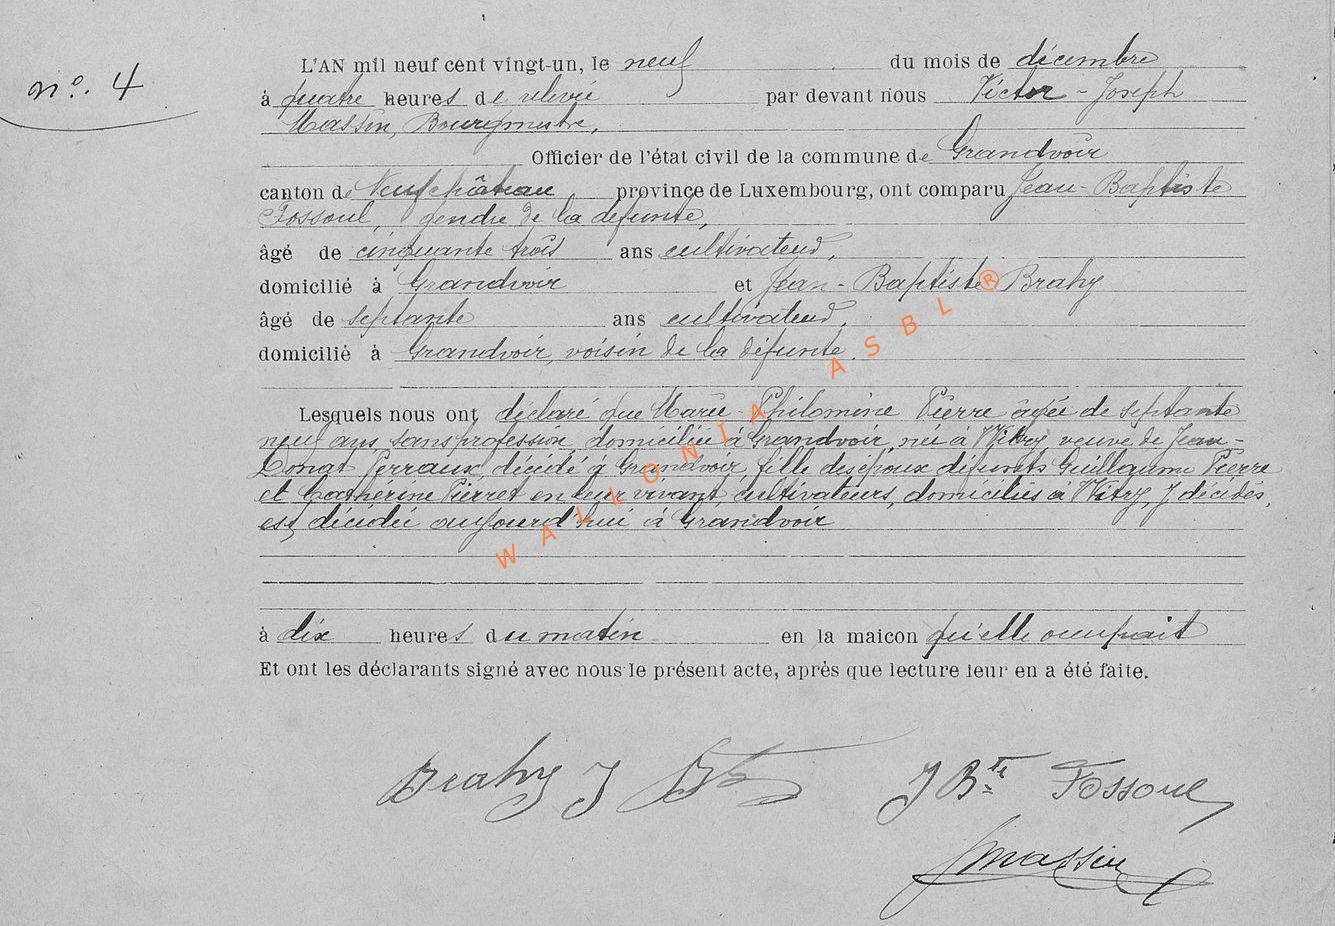 no. 4
L'AN mil neuf cent vingt-un, le neuf du mois de décembre
à quatre heures de relevée par devant nous Victor-Joseph
Massin, Bourgmestre,
Officier de l'état civil de la commune de Grandvoir
canton de Neufchâteau province de Luxembourg, ont comparu Jean-Baptiste
Fossoul, gendre de la défunte,
âgé de cinquante trois ans cultivateur,
domicilié à Grandvoir et Jean-Baptiste Brahy
âgé de septante ans cultivateur,
domicilié à Grandvoir, voisin de la défunte.
Lesquels nous ont déclaré que Marie-Philomène Pierre âgée de septante
neuf ans, sans profession, domiciliée à Grandvoir, née à Witry, veuve de Jean-
Donat Perraux, décédé à Grandvoir, fille des époux défunts Guillaume Pierre
et Cathérine Pierret en leur vivant, cultivateurs, domiciliés à Witry, y décédés,
est décédée aujourd'hui à Grandvoir
à dix heures du matin en la maicon qu'elle occupait
Et ont les déclarants signé avec nous le présent acte, après que lecture leur en a été faite.
Brahy J Bte J Bte Fossoul
Massin
WALLONIA ASBL ®